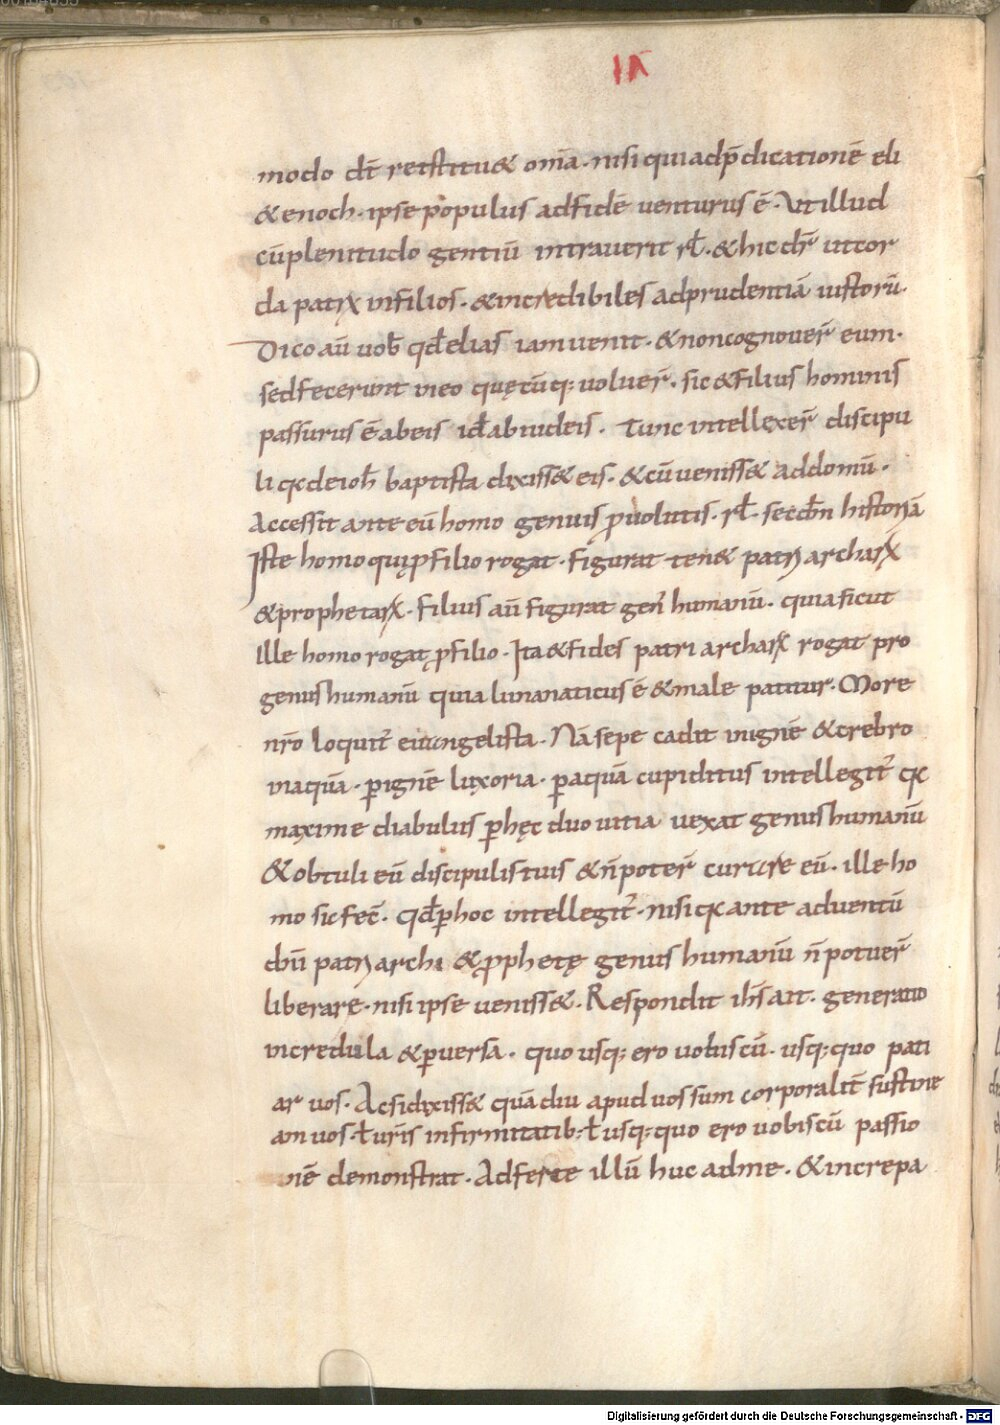 modo dr̄ restituet om̄a. nisi quia adp̄dicationē eli
& enoch. ipse populus adfidē venturus ē. Ut illud
cū plenitudo gentiū intraverit rł. & hic dr̄ ut cor
da patrꝝ in filios. & incredibiles ad prudentiā iustorū.
Dico aū vob̄ qđ elias iam venit. & non cognover̄ eum.
sed fecerunt in eo quęcūq; voluer̄. sic & filius hominis
passurus ē ab eis id̄ ab iudeis. Tunc intellexer̄ discipu
li qꝛ de ioh̄ baptista dixiss& eis. & cū veniss& ad domū.
Accessit ante eū homo genuis p̱volutis. rł. secd̄m historiā
Iste homo qui ꝓ filio rogat. figurat ten& patriarcharꝝ
& prophetarꝝ. filius aū figurat gen̄ humanū. quia sicut
ille homo rogat ꝓ filio. Ita & fides patriarcharꝝ rogat pro
genus humanū quia lunanaticus ē & male patitur. More
nr̄o loquit̄ euangelista. Nā sepe cadit in ignē & crebro
in aquā. ꝑ ignē luxoria. ꝑ aquā cupiditus intellegit̄ qꝛ
maxime diabulus ꝑ hęc duo vitia vexat genus humanū
& obtuli eū discipulis tuis & n̄ poter̄ curare eū. ille ho
mo sic fec̄. qđ ꝑ hoc intellegit̄. nisi qꝛ ante adventū
dn̄i patriarchi & ꝓphetę genus humanū n̄ potuer̄
liberare. nisi ipse veniss&. Respondit ih̄s ait. generatio
incredula & ꝑversa. quo usq; ero vobis cū. usq; quo pati
ar vos. Ac si dixiss& quā diu apud vos sum corporalit̄ sustine
am vos. ł uris̄ infirmitatib; ł usq; quo ero vobis cū passio
nē demonstrat. Adferte illū huc ad me. & increpa
Digitalisierung gefördert durch die Deutsche Forschungsgemeinschaft - DFG